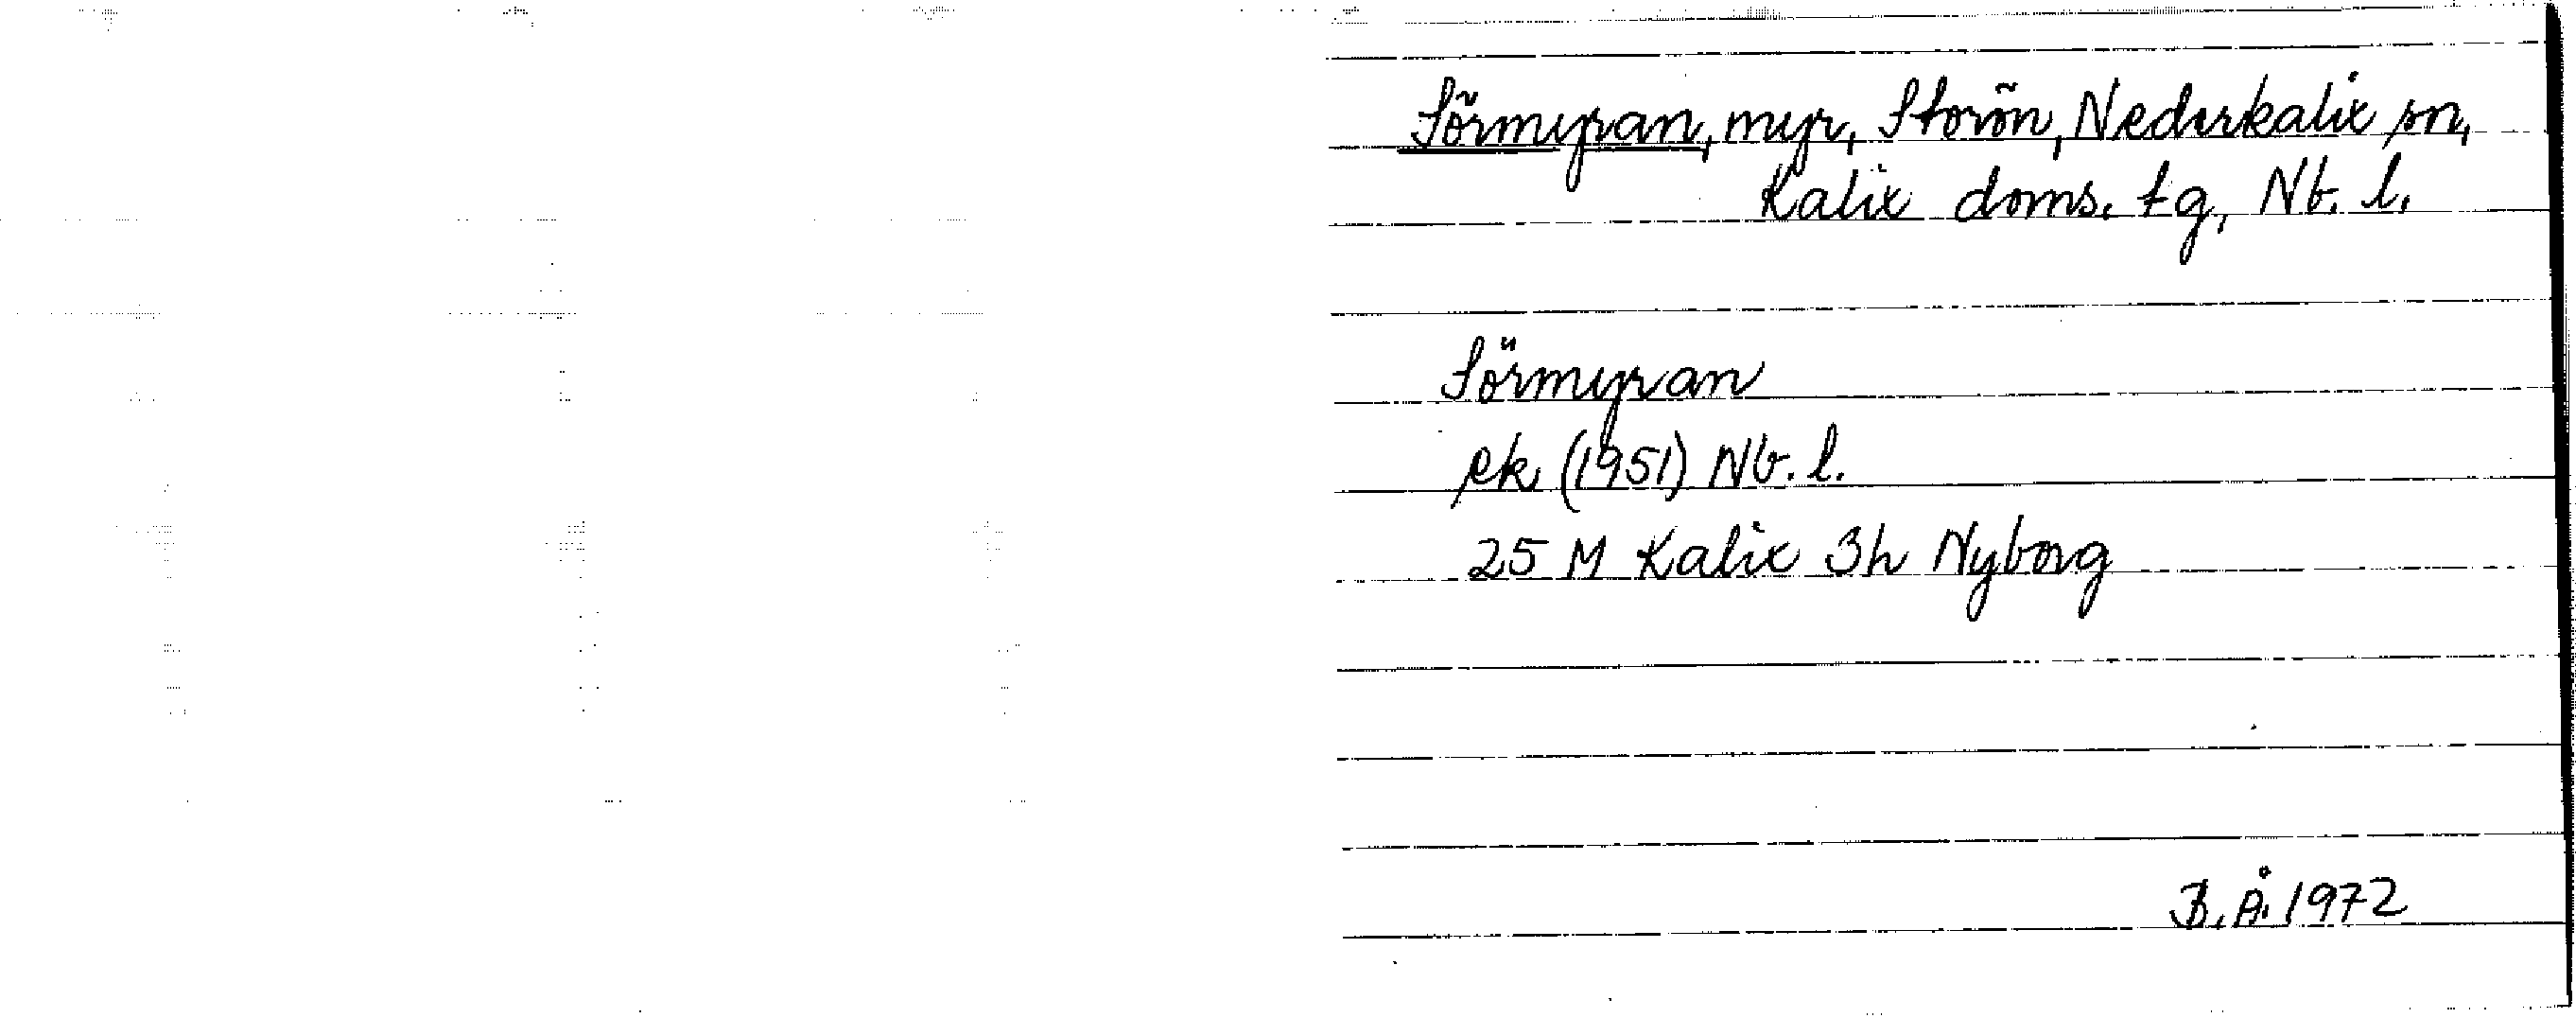 Sörmyran, myr, Storön, Nederkalix sn,
Kalix doms. tg, Nb. l.
Sörmyran
ek (1951) Nb. l.
25 M Kalix 3h Nyborg
B. Å. 1972